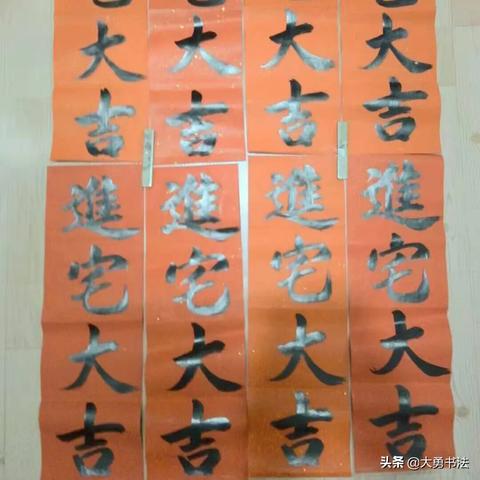 宅大吉
宅大吉
宅大吉
宅大吉
進宅大吉
進宅大吉
進宅大吉
進宅大吉
头条 @大勇书法